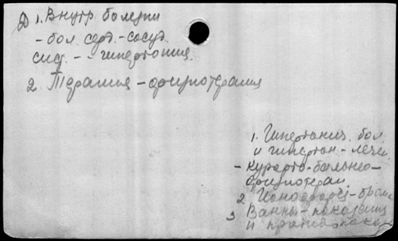 1. Внутр болезни
- бол. серд.-сосуд.
сис. - гипертония.
2. Терапия - физиотерапия
1. Гипертонич. бол.
и гипертон - лечен
- курорто-бальнео-
физиотерап
2 Ионофорез - бром
3 Ванны - показания
и противопоказ